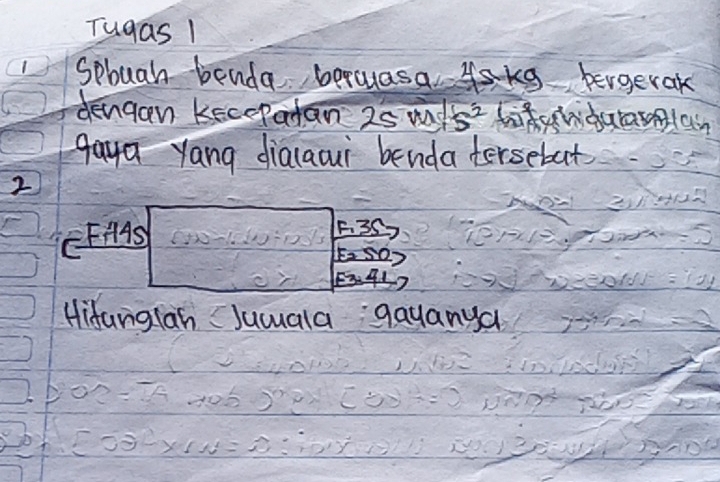 Tugas 1
1 Sebuah benda bermasa 45 kg bergerak
dengan kecepatan 25 m/s²
gaya yang dialami benda tersebut
2
F
F1 35
F2 50
F3 41
Hitunglah Jumala gayanya